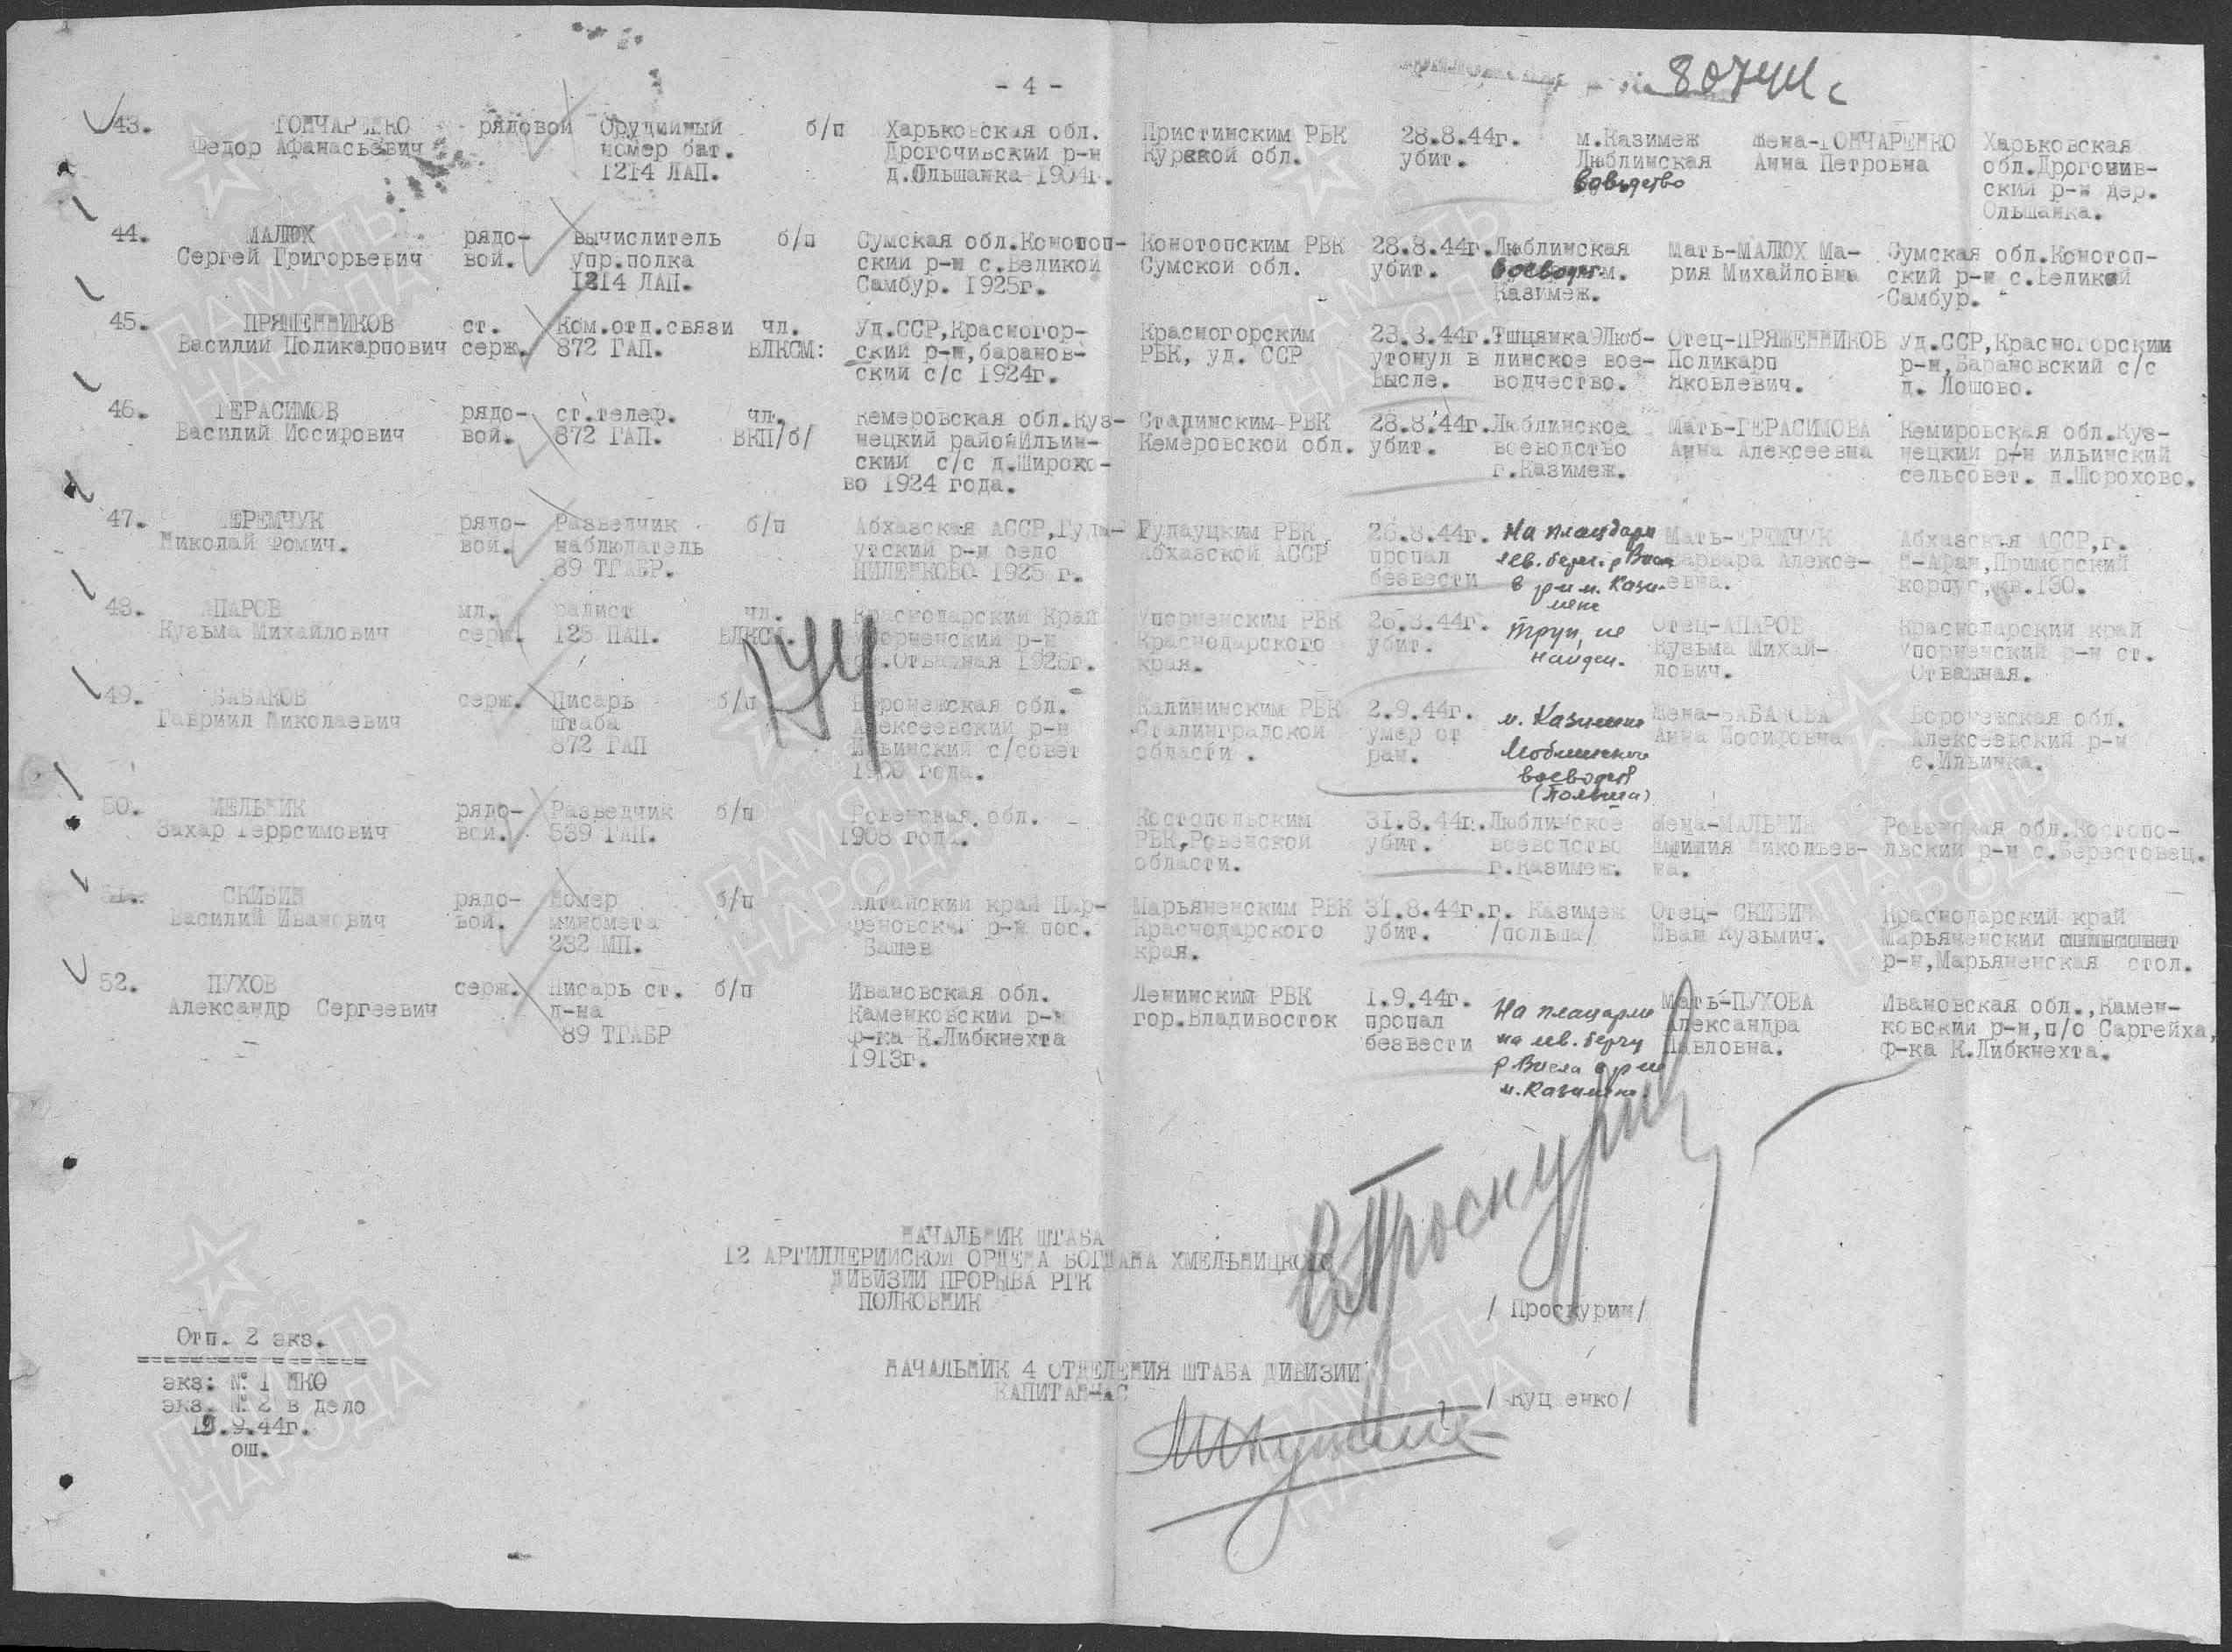 - 4 -
80741 с
43. ГОНЧАРЕНКО рядовой Орудийный б/п Харьковская обл. Пристинским РВК 28.8.44г. м.Казимеж Жена-ГОНЧАРЕНКО Харьковская
Федор Афанасьевич номер бат. Дрогочивский р-н Курской обл. убит. Люблинская Анна Петровна обл.Дрогочив-
1214 ЛАП. д.Ольшанка 1904г. воеводство ский р-н дер.
Ольшанка.
44. МАЛЮХ рядо- вычислитель б/п Сумская обл.Конотоп- Конотопским РВК 28.8.44г. Люблинская Мать-МАЛЮХ Ма- Сумская обл.Конотоп-
Сергей Григорьевич вой. упр.полка ский р-н с.Великой Сумской обл. убит. м. рия Михайловна ский р-н с.Великой
1214 ЛАП. Самбур. 1925г. Казимеж. Самбур.
45. ПРЯЖЕННИКОВ ст. Ком.отд.связи чл. Уд.ССР,Красногор- Красногорским 23.8.44г. Люб- Отец-ПРЯЖЕННИКОВ Уд.ССР,Красногорский
Василий Поликарпович серж. 872 ГАП. ВЛКСМ: ский р-н,баранов- РВК, уд. ССР утонул в линское вое- Поликарп р-н,Барановский с/с
ский с/с 1924г. Висле. водчество. Яковлевич. д. Лошово.
46. ГЕРАСИМОВ рядо- ст.телеф. чл. Кемеровская обл.Куз- Сталинским РВК 28.8.44г. Люблинское Мать-ГЕРАСИМОВА Кемировская обл.Куз-
Василий Иосифович вой. 872 ГАП. ВКП/б/ нецкий район Ильин- Кемеровской обл. убит. воеводство Анна Алексеевна нецкий р-н ильинский
ский с/с д.Широко- г.Казимеж. сельсовет. д.Шорохово.
во 1924 года.
47. ЕРЕМЧУК рядо- Разведчик б/п Абхазская АССР,Гуда- Гудауцким РВК 26.8.44г. На плацдарм Мать-ЕРЕМЧУК Абхазская АССР,г.
Николай Фомич. вой. наблюдатель утский р-н село Абхазской АССР пропал лев. берег. р Висл Варвара Алексе- Н-Афон,Приморский
89 ТГАБР. 1925 г. безвести в р-н м. Кази- евна. корпус,кв.130.
меж
48. АПАРОВ мл. радист чл. Краснодарский Край Упорненским РВК 26.8.44г. труп не Отец-АПАРОВ Краснодарский край
Кузьма Михайлович серж. 123 ПАП. ВЛКСМ. Упорненский р-н Краснодарского убит. найден. Кузьма Михай- Упорненский р-н ст.
ст.Отважная 1926г. края. лович. Отважная.
144
49. БАБАКОВ серж. Писарь б/п Воронежская обл. Калининским РВК 2.9.44г. м. Казимеж Жена-БАБАКОВА Воронежская обл.
Гавриил Николаевич штаба Алексеевский р-н Сталинградской умер от Люблинское Анна Иосифовна Алексеевский р-н
872 ГАП Ильинский с/совет области. ран. воеводств с.Ильинка.
года. (Польша)
50. МЕЛЬНИК рядо- Разведчик б/п Ровенская обл. Костопольским 31.8.44г. Люблинское Жена-МАЛЬНИК Ровенская обл.Костопо-
Захар Геррсимович вой. 539 ГАП. 1908 года. РВК,Ровенской убит. воеводство Николаев- льский р-н с.Берестовец.
области. г.Казимеж. на.
51. СКИБИН рядо- Номер б/п Алтайский край Пар- Марьяненским РВК 31.8.44г. г. Казимеж Отец- СКИБИН Краснодарский край
Василий Иванович вой. миномета феновский р-н пос. Краснодарского убит. /польша/ Иван Кузьмич. Марьяненский
232 МП. Башев края. р-н,Марьяненская стол.
52. ПУХОВ серж. Писарь ст. б/п Ивановская обл. Ленинским РВК 1.9.44г. На плацдарме Мать-ПУХОВА Ивановская обл.,Камен-
Александр Сергеевич д-на Каменковский р-н гор.Владивосток пропал на лев. берегу Александра ковский р-н,п/о Саргейха,
89 ТГАБР ф-ка К.Либкнехта безвести р Висла в р-не Павловна. Ф-ка К.Либкнехта.
1913г. м. Казимеж.
НАЧАЛЬНИК ШТАБА
12 АРТИЛЛЕРИЙСКОЙ ОРДЕНА БОГДАНА ХМЕЛЬНИЦКОГО
ДИВИЗИИ ПРОРЫВА РГК
ПОЛКОВНИК
В Проскурин
/ Проскурин/
НАЧАЛЬНИК 4 ОТДЕЛЕНИЯ ШТАБА ДИВИЗИИ
КАПИТАН А/С
/ Куценко/
Отп. 2 экз.
экз: № 1 НКО
экз. № 2 в дело
.9.44г.
ош.
ПАМЯТЬ
НАРОДА